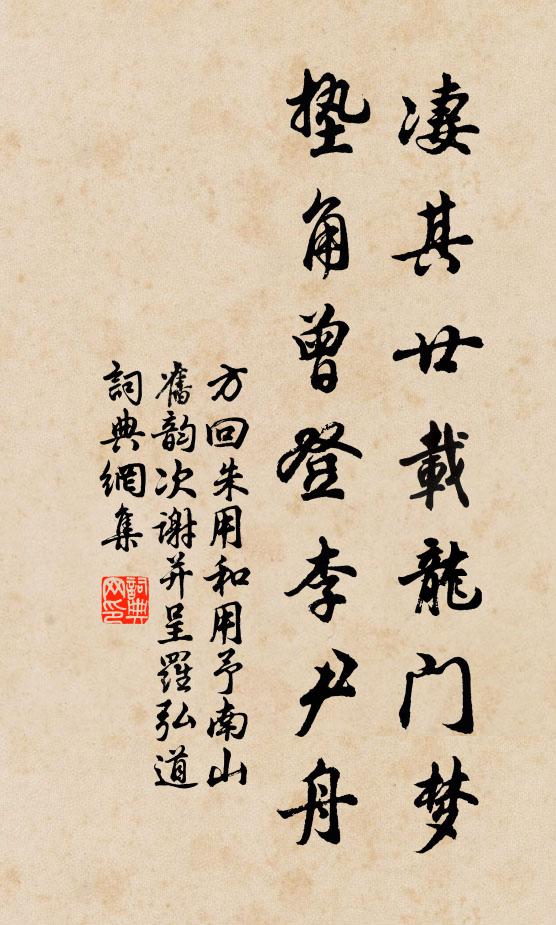 凄其廿載龍门梦
垫角曾登李尹舟
方回朱用和用予南山
舊韵次谢并呈羅弘道
詞典網集
詞典网印